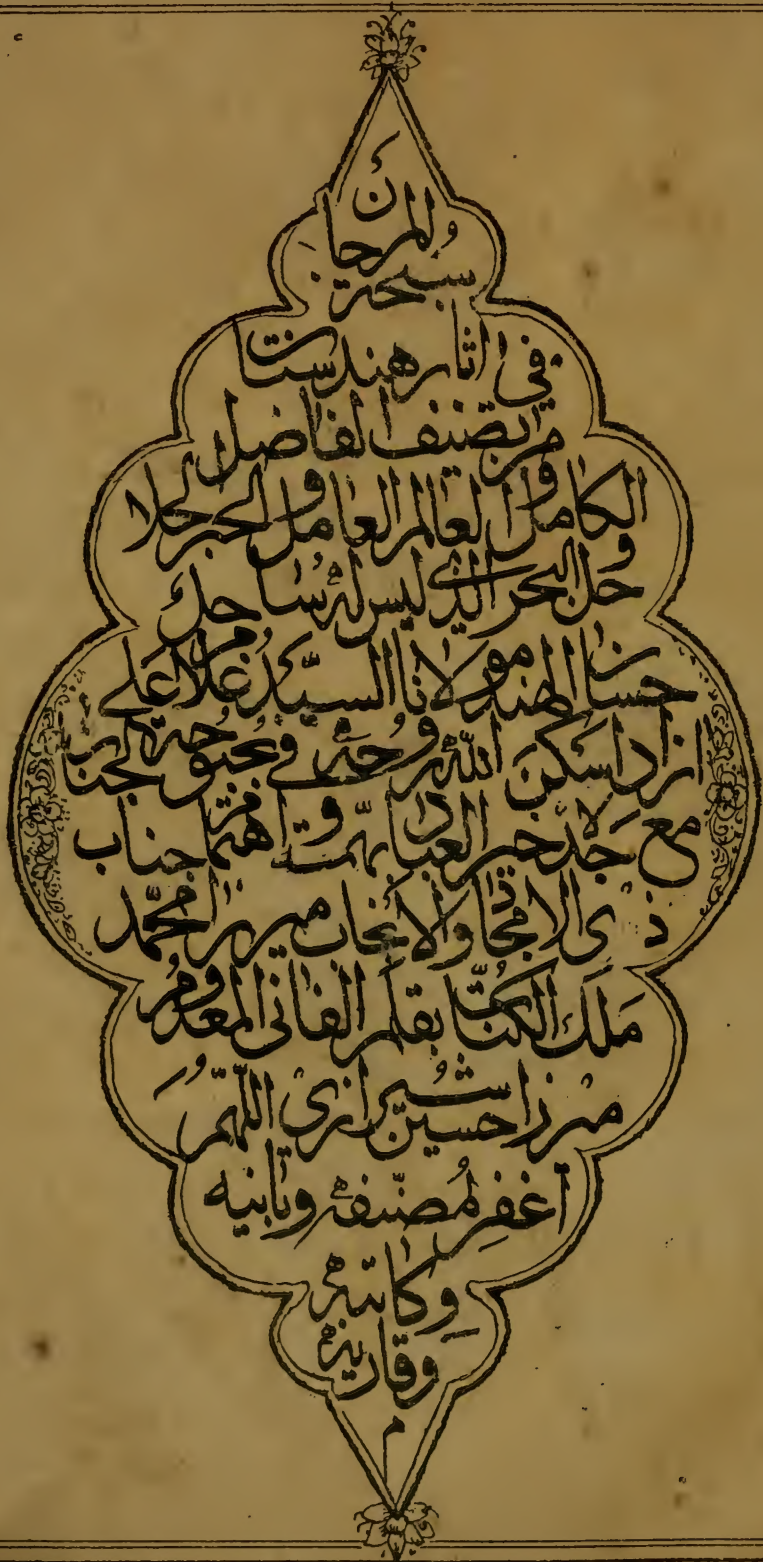 سبحة المرجان
في اثار هندستان
من تصنيف الفاضل
الكامل و العالم العامل و الحبر الحلا
حل و البحر الذي ليس له ساحل
حسان الهند مولانا السيد غلام علي
ازاد اسكن الله روحه في بحبوحة الجنان
مع جده خير العباد بهمت و اهتمام جناب
ذي الامجاد والا نجاب ميرزا محمد
ملك الكتاب بقلم الفاني المعدوم
ميرزا حسين شيرازي اللهم
اغفر لمصنفه وبانيه
وكاتبه
وقاريه
م